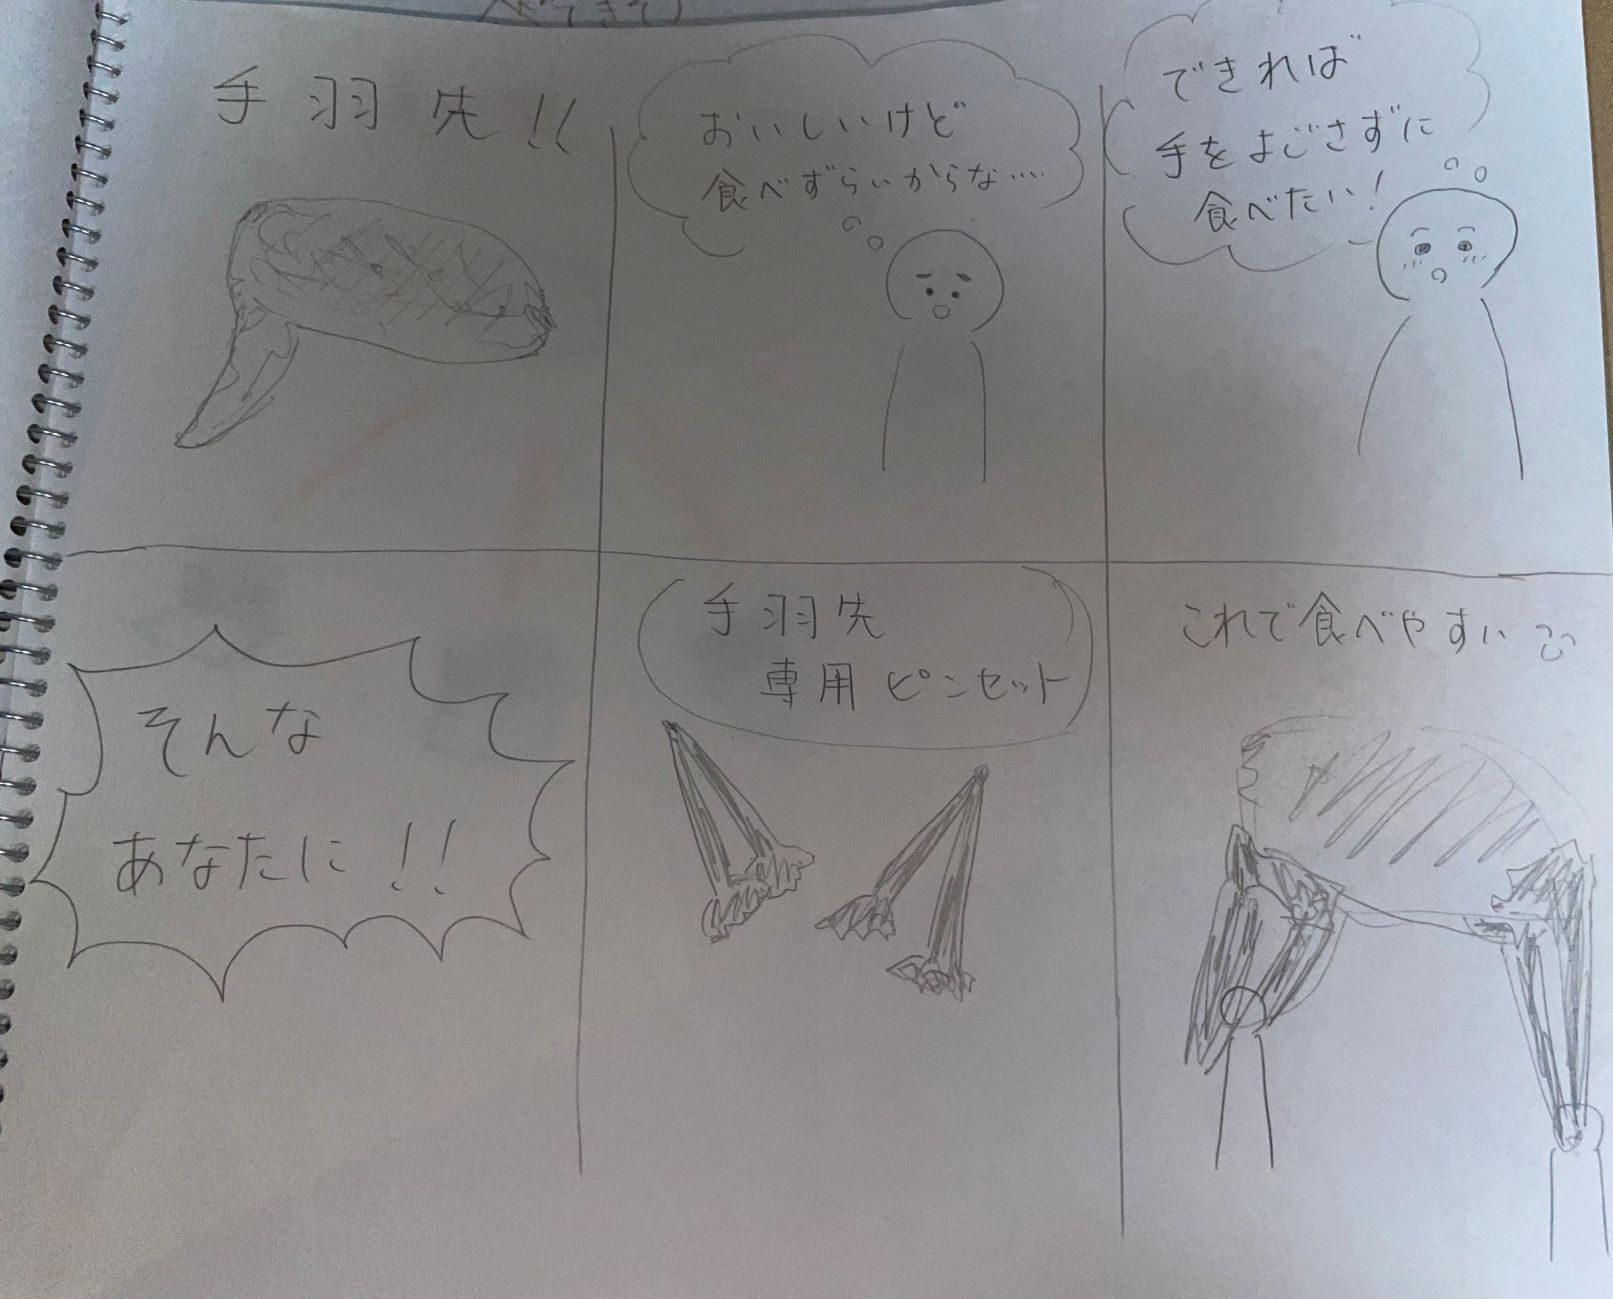 手羽先!!
おいしいけど
食べずらいからな….
できれば
手をよごさずに
食べたい!
そんな
あなたに!!
手羽先
専用ピンセット
これで食べやすい